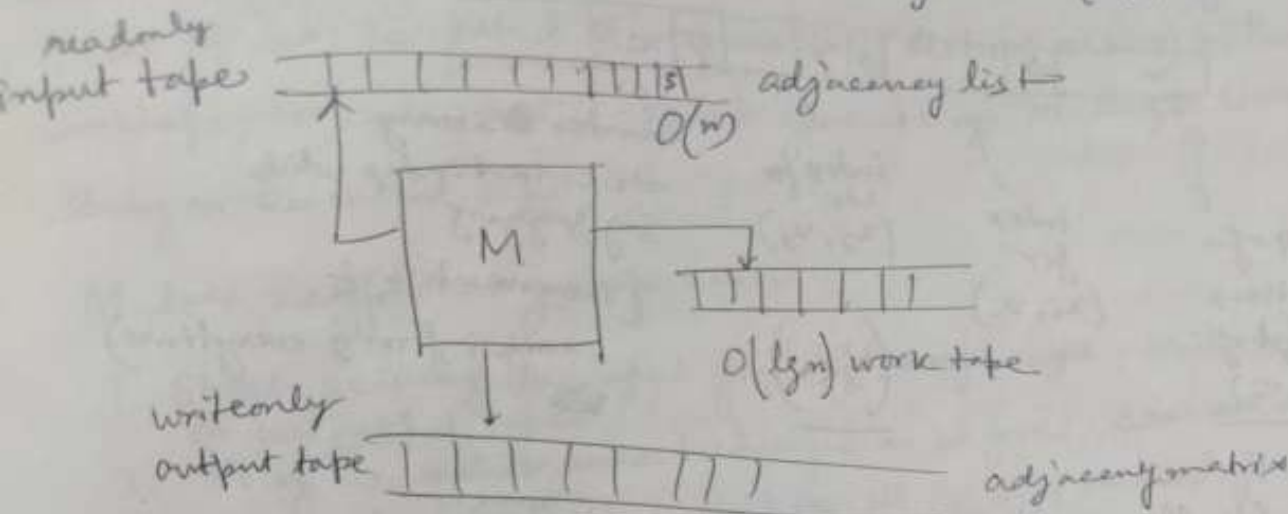 readonly
input tape
s
adjacency list
O(n)
M
O(lgn) work tape
writeonly
output tape
adjacency matrix